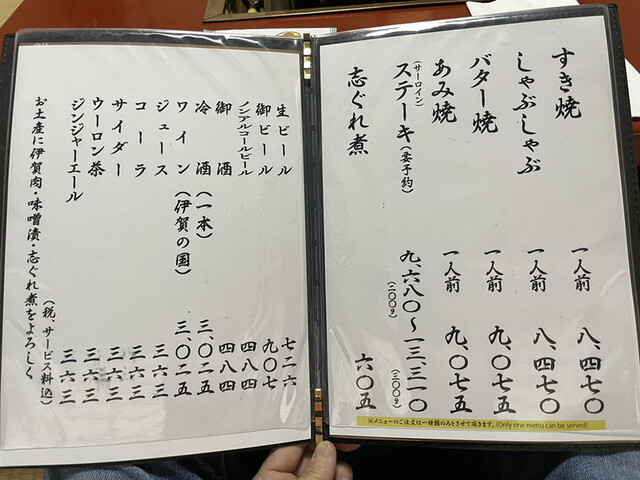 すき焼 一人前 八、四七〇
しゃぶしゃぶ 一人前 八、四七〇
バター焼 一人前 九、〇七五
あみ焼 一人前 九、〇七五
(サーロイン)ステーキ(要予約) 九、六八〇~一三、三一〇
(二〇〇g) (三〇〇g)
志ぐれ煮 六〇五
※メニューのご注文は一種類のみとさせて頂きます。(Only one menu can be served)
生ビール 七二六
御ビール 九〇七
ノンアルコールビール 四八四
御酒 四八四
冷酒(一本) 三、〇二五
ワイン(伊賀の国) 三、〇二五
ジュース 三六三
コーラ 三六三
サイダー 三六三
ウーロン茶 三六三
ジンジャーエール 三六三
(税、サービス料込)
お土産に伊賀肉・味噌漬・志ぐれ煮をよろしく